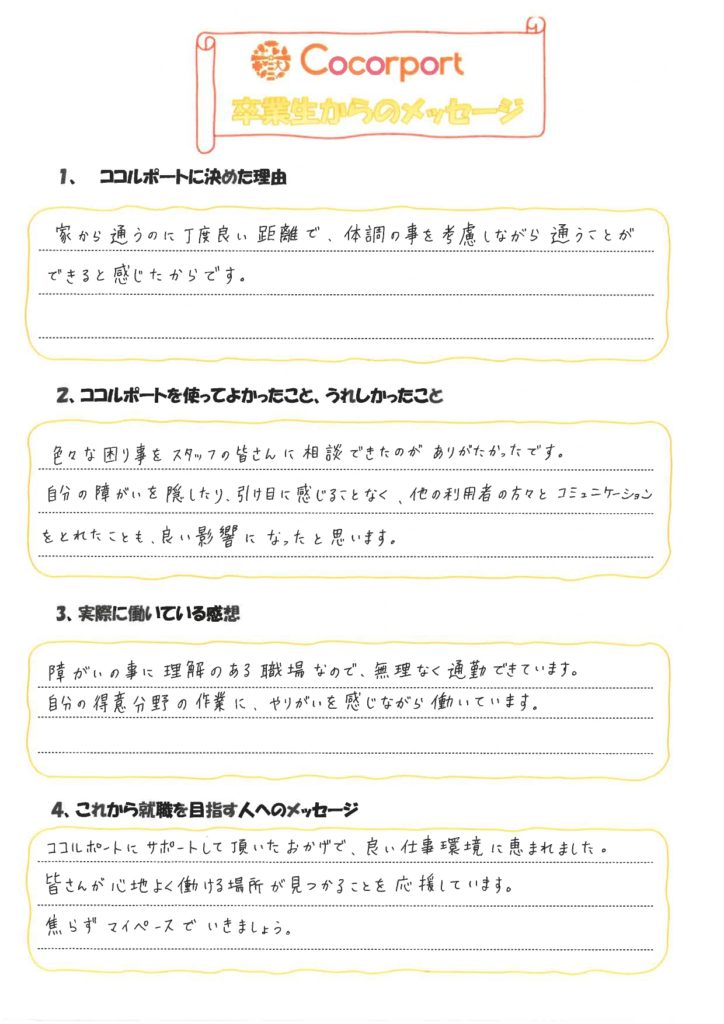 Cocorport
卒業生からのメッセージ
1、 ココルポートに決めた理由
家から通うのに丁度良い距離で、体調の事を考慮しながら通うことが
できると感じたからです。
2、ココルポートを使ってよかったこと、うれしかったこと
色々な困り事をスタッフの皆さんに相談できたのがありがたかったです。
自分の障がいを隠したり、引け目に感じることなく、他の利用者の方々とコミュニケーション
をとれたことも、良い影響になったと思います。
3、実際に働いている感想
障がいの事に理解のある職場なので、無理なく通勤できています。
自分の得意分野の作業に、やりがいを感じながら働いています。
4、これから就職を目指す人へのメッセージ
ココルポートにサポートして頂いたおかげで、良い仕事環境に恵まれました。
皆さんが心地よく働ける場所が見つかることを応援しています。
焦らずマイペースでいきましょう。